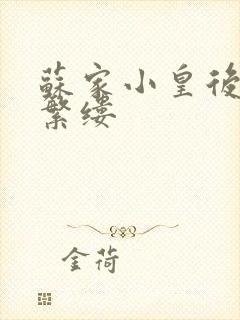 蘇家小皇後
繁缕
金荷